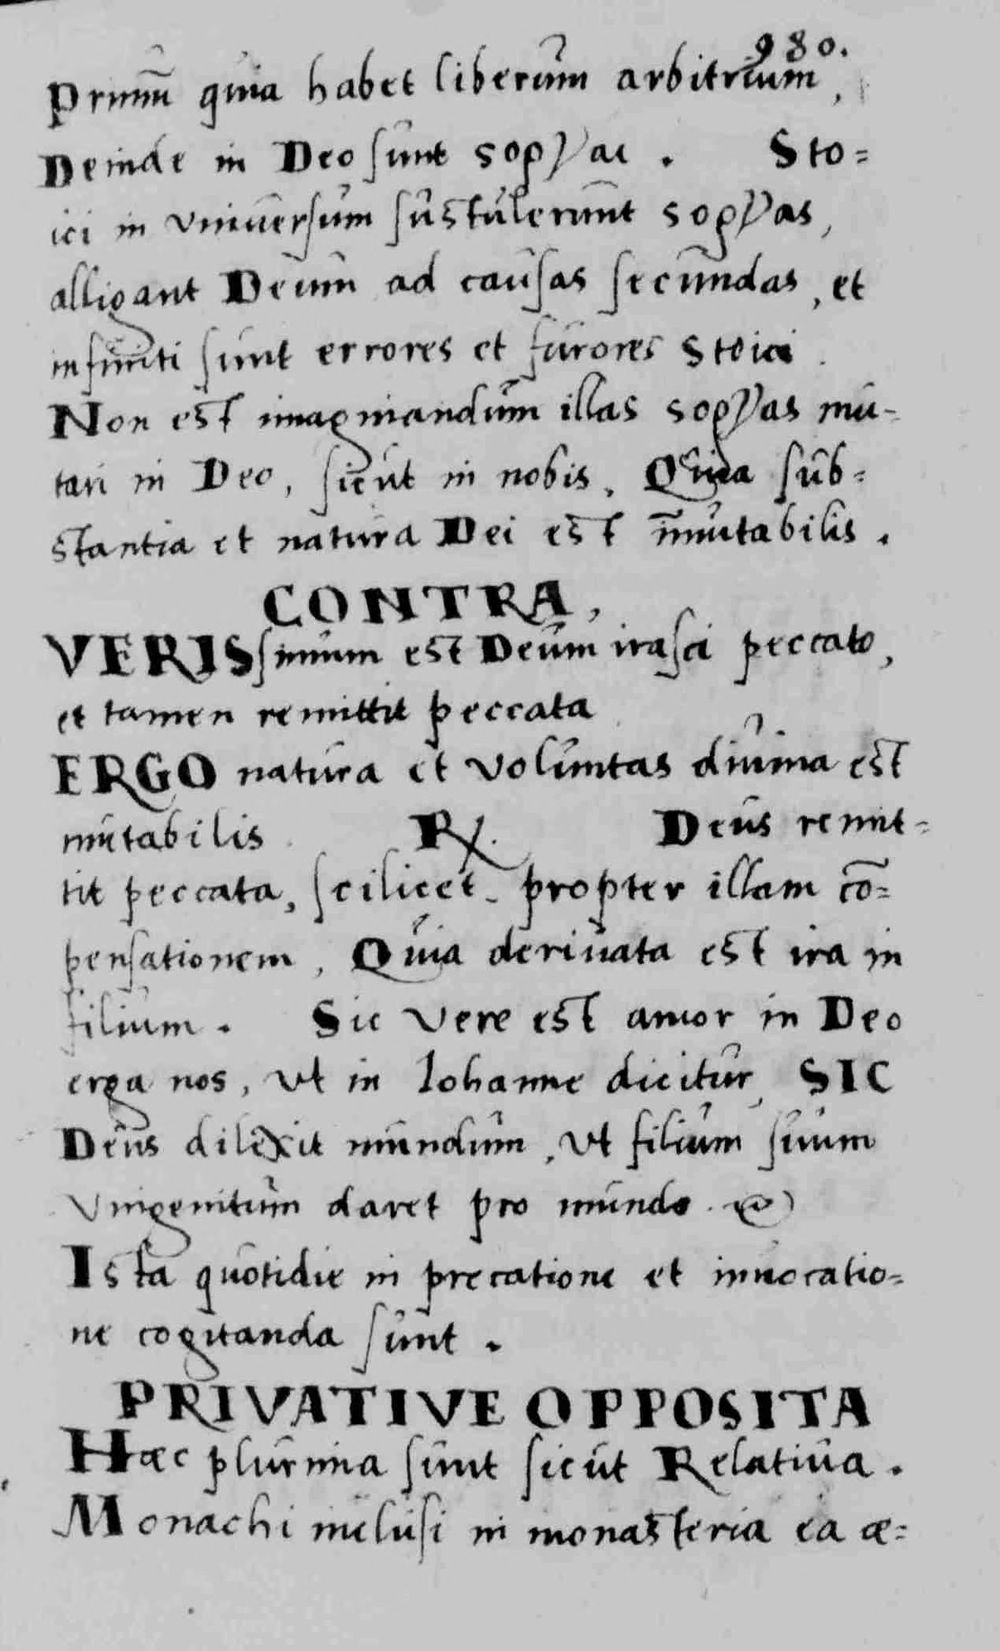 980.
Primum quia habet liberum arbitrium,
Deinde in Deo sunt ϛοργαι. Sto=
ici in vniuersum sustulerunt ϛοργας,
alligant Deum ad causas secundas, et
infiniti sunt errores et furores Stoici.
Non est imaginandum illas ϛοργας mu-
tari in Deo, sicut in nobis. Quia sub=
stantia et natura Dei est im̄utabilis.
CONTRA,
VERISsimum est Deum irasci peccato,
et tamen remittit peccata
ERGO natura et voluntas diuina est
mutabilis. R⁄. Deus remit=
tit peccata, scilicet. propter illam cō=
pensationem, Quia deriuata est ira in
filium. Sic vere est amor in Deo
erga nos, vt in Iohanne dicitur, SIC
Deus dilexit mundum, vt filium suum
vnigenitum daret pro mundo.
Ista quotidie in precatione et inuocatio=
ne cogitanda sunt.
PRIVATIVE OPPOSITA
Hæc plurima sunt sicut Relatiua.
Monachi inclusi in monasteria ea æ=